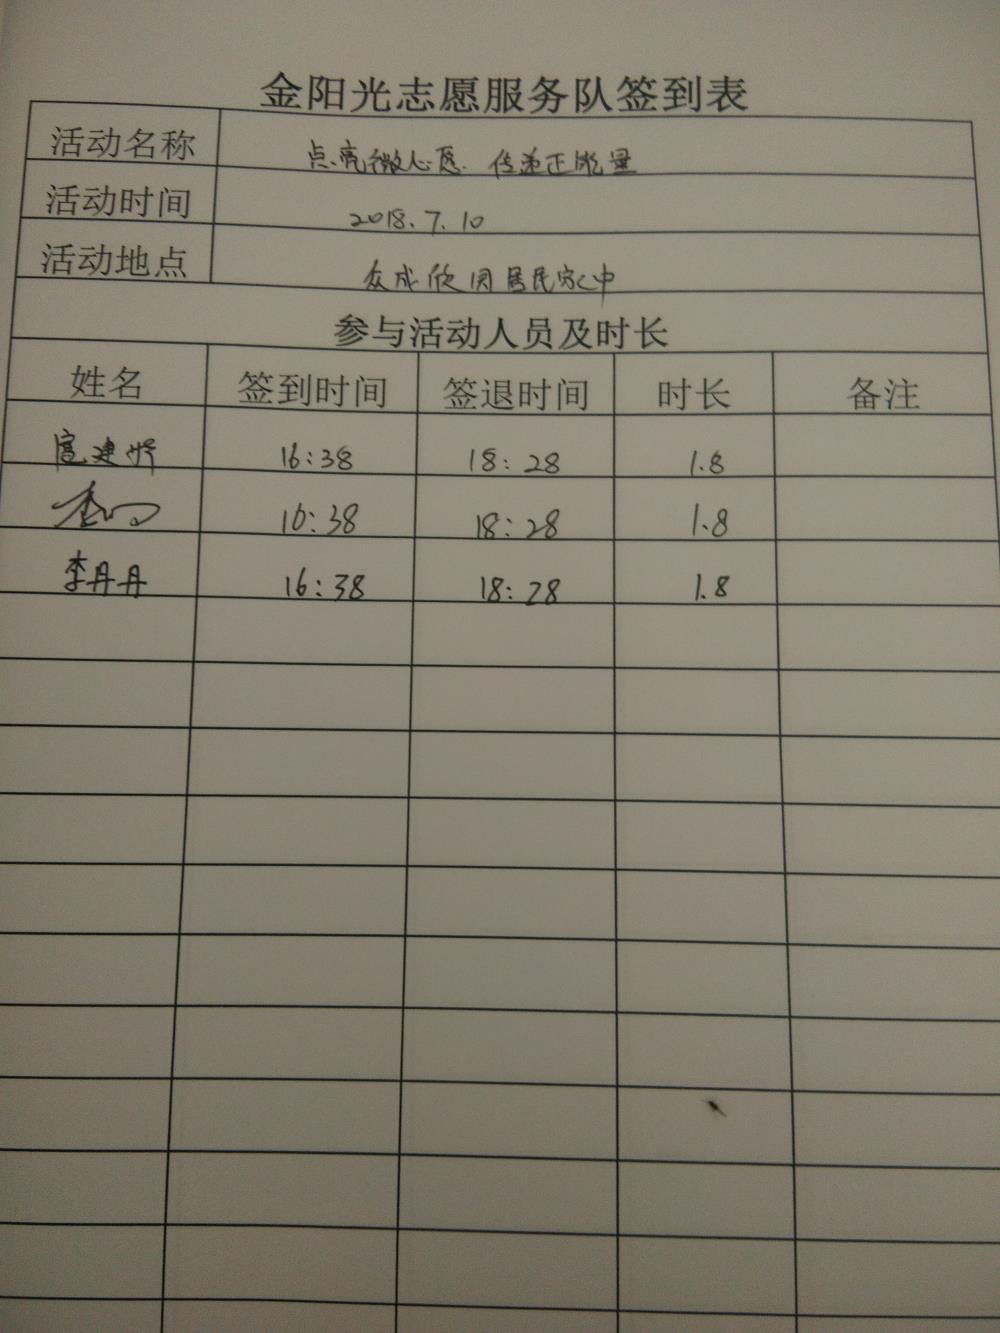 金阳光志愿服务队签到表
活动名称 点亮微心愿 传递正能量
活动时间 2018.7.10
活动地点 众成欣园居民家中
参与活动人员及时长
姓名 签到时间 签退时间 时长 备注
建 16:38 18:28 1.8
李 16:38 18:28 1.8
李丹丹 16:38 18:28 1.8